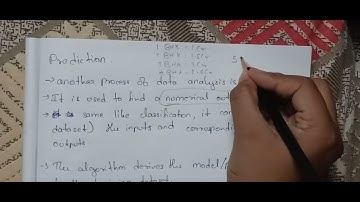 Prediction
1 BHK - 1 Cr
S
→ another process of data analysis is
→ It is used to find a numerical out
→ same like classification, it con
dataset) the inputs and correspondi
outputs
→ The algorithm derives the model/p
dataset